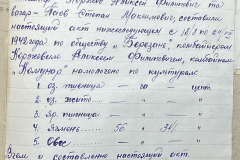 Алексей Филипович и
вогар- Гаев Степан Максимович, составили
настоящий акт нижеследующем с 18/8 по
1942 года по обществу Березань, комбайнером
Алексеем Филиповичем, комбайном
"Комунар" намолочено по культурам
1 оз. пшеница — га — цент.
2 оз. жито — " — "
3 яр. пшеница — " — "
4 Ячмень — 56 " 34 "
5 Овес — " — "
В чем и составлено настоящий акт